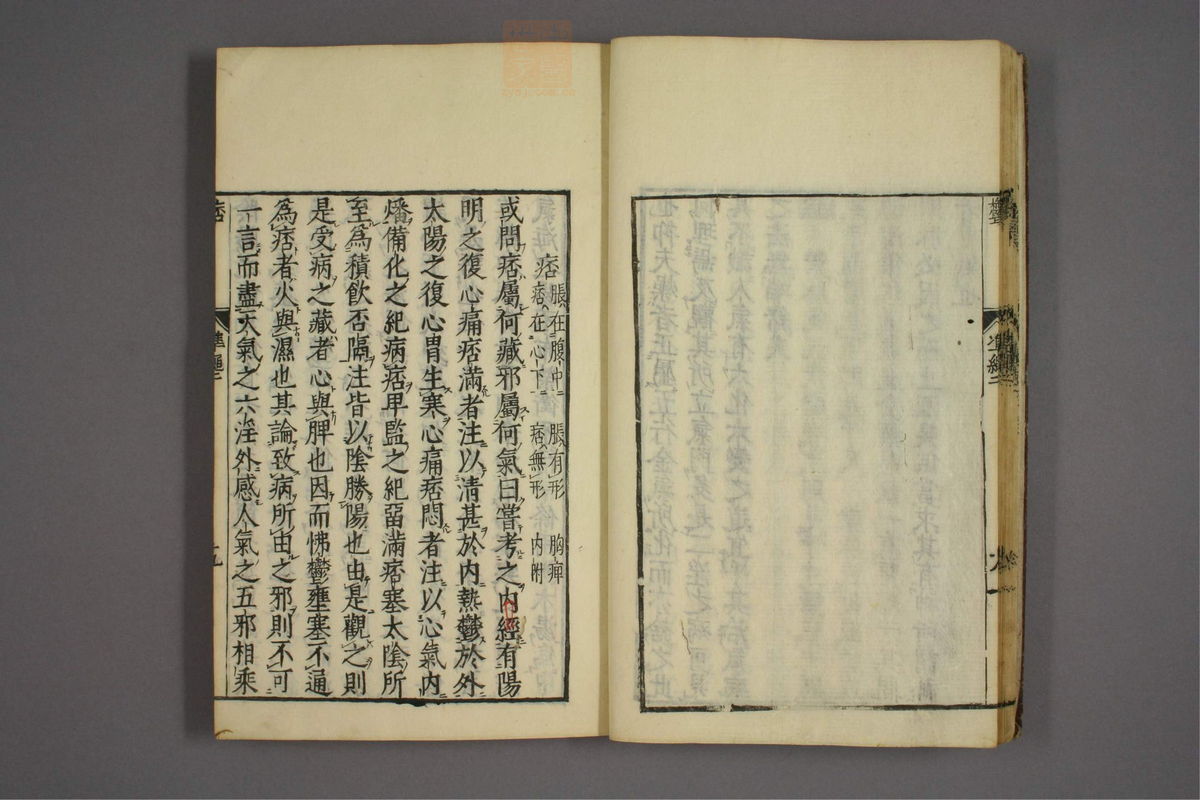 痞 脹在腹中 痞在心下 脹有形 痞無形 胸痺 內附
或問痞屬何藏邪屬何氣曰嘗考之內經有陽
明之復心痛痞滿者注以清甚於內熱鬱於外
太陽之復心胃生寒心痛痞悶者注以心氣內
燔備化之紀病痞卑監之紀留滿痞塞太陰所
至為積飲否膈注皆以陰勝陽也由是觀之則
是受病之藏者心與脾也因而怫鬱壅塞不通
為痞者火與濕也其論致病所由之邪則不可
一言而盡天氣之六淫外感人氣之五邪相乘